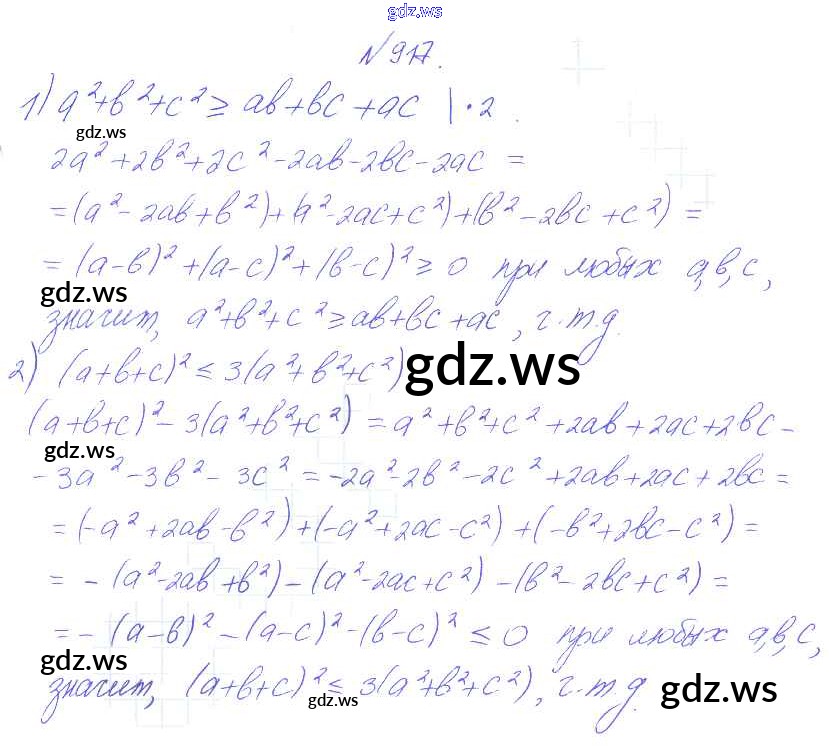 gdz.ws
№917.
1) a²+b²+c² ≥ ab+bc+ac |·2
gdz.ws
2a²+2b²+2c²-2ab-2bc-2ac =
=(a²-2ab+b²)+(a²-2ac+c²)+(b²-2bc+c²) =
= (a-b)²+(a-c)²+(b-c)² ≥ 0 при любых a,b,c,
gdz.ws
значит, a²+b²+c² ≥ ab+bc+ac, ч.т.д.
2) (a+b+c)² ≤ 3(a²+b²+c²)
gdz.ws
(a+b+c)²-3(a²+b²+c²) = a²+b²+c²+2ab+2ac+2bc-
gdz.ws
-3a²-3b²-3c² = -2a²-2b²-2c²+2ab+2ac+2bc=
=(-a²+2ab-b²)+(-a²+2ac-c²)+(-b²+2bc-c²)=
= -(a²-2ab+b²)-(a²-2ac+c²)-(b²-2bc+c²)=
=-(a-b)²-(a-c)²-(b-c)² ≤ 0 при любых a,b,c,
gdz.ws
значит, (a+b+c)² ≤ 3(a²+b²+c²), ч.т.д.
gdz.ws
gdz.ws